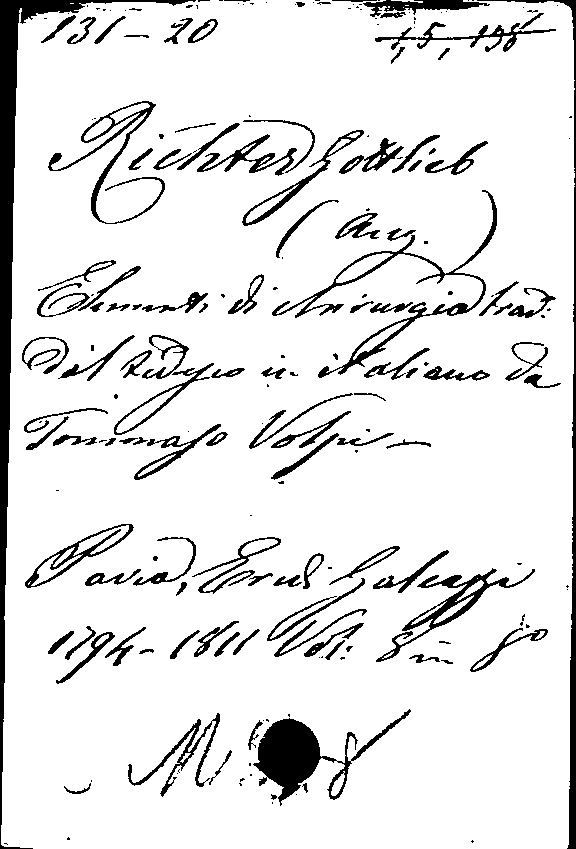 131-20 1,5,198
Richter Gottlieb
(Aug.)
Elementi di chirurgia trad:
dal tedesco in italiano da
Tommaso Volpi —
Pavia, Eredi Galeazzi
1794-1811 Vol: 8 in 8º
M 8